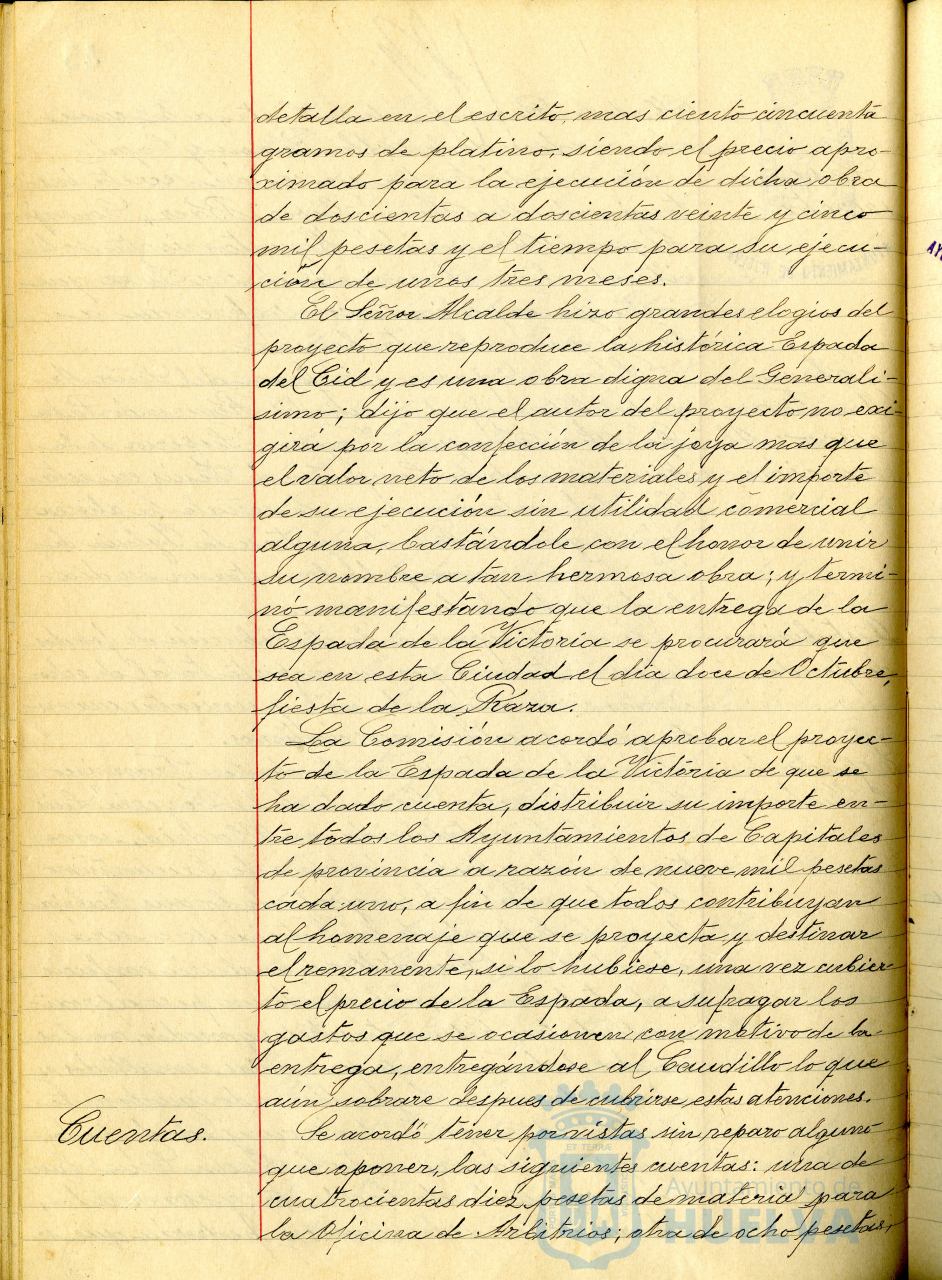 detalla en el escrito, mas ciento cincuenta
gramos de platino, siendo el precio apro-
ximado para la ejecución de dicha obra
de doscientas a doscientas veinte y cinco
mil pesetas y el tiempo para su ejecu-
ción de unos tres meses.
El Señor Alcalde hizo grandes elogios del
proyecto que reproduce la histórica Espada
del Cid y es una obra digna del Generalí-
simo; dijo que el autor del proyecto no exi-
girá por la confección de la joya mas que
el valor neto de los materiales y el importe
de su ejecución sin utilidad comercial
alguna, bastándole con el honor de unir
su nombre a tan hermosa obra; y termi-
nó manifestando que la entrega de la
Espada de la Victoria se procurará que
sea en esta Ciudad el día doce de Octubre,
fiesta de la Raza.
La Comisión acordó aprobar el proyec-
to de la Espada de la Victoria de que se
ha dado cuenta, distribuir su importe en-
tre todos los Ayuntamientos de Capitales
de provincia a razón de nueve mil pesetas
cada uno, a fin de que todos contribuyan
al homenaje que se proyecta y destinar
el remanente, si lo hubiese, una vez cubier-
to el precio de la Espada, a sufragar los
gastos que se ocasionen con motivo de la
entrega, entregándose al Caudillo lo que
aún sobrare despues de cubrirse estas atenciones.
Cuentas.
Se acordó tener por vistas sin reparo alguno
que oponer, las siguientes cuentas: una de
cuatrocientas diez pesetas de material para
la Oficina de Arbitrios; otra de ocho pesetas,
Ayuntamiento de
HUELVA